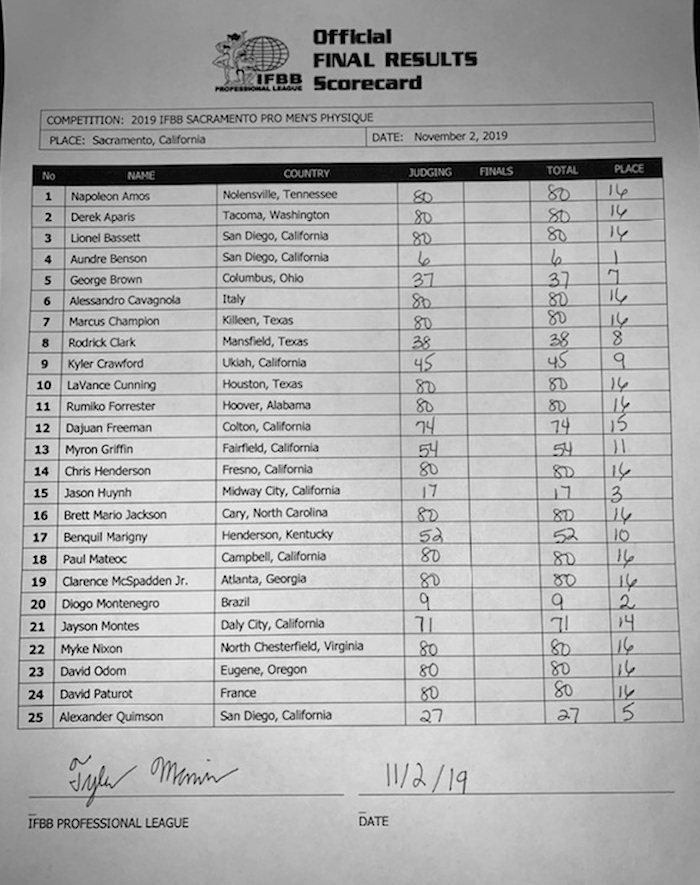 Official
FINAL RESULTS
Scorecard
IFBB
PROFESSIONAL LEAGUE
COMPETITION: 2019 IFBB SACRAMENTO PRO MEN'S PHYSIQUE
PLACE: Sacramento, California DATE: November 2, 2019
No NAME COUNTRY JUDGING FINALS TOTAL PLACE
1 Napoleon Amos Nolensville, Tennessee 80 80 16
2 Derek Aparis Tacoma, Washington 80 80 16
3 Lionel Bassett San Diego, California 80 80 16
4 Aundre Benson San Diego, California 6 6 1
5 George Brown Columbus, Ohio 37 37 7
6 Alessandro Cavagnola Italy 80 80 16
7 Marcus Champion Killeen, Texas 80 80 16
8 Rodrick Clark Mansfield, Texas 38 38 8
9 Kyler Crawford Ukiah, California 45 45 9
10 LaVance Cunning Houston, Texas 80 80 16
11 Rumiko Forrester Hoover, Alabama 80 80 16
12 Dajuan Freeman Colton, California 74 74 15
13 Myron Griffin Fairfield, California 54 54 11
14 Chris Henderson Fresno, California 80 80 16
15 Jason Huynh Midway City, California 17 17 3
16 Brett Mario Jackson Cary, North Carolina 80 80 16
17 Benquil Marigny Henderson, Kentucky 52 52 10
18 Paul Mateoc Campbell, California 80 80 16
19 Clarence McSpadden Jr. Atlanta, Georgia 80 80 16
20 Diogo Montenegro Brazil 9 9 2
21 Jayson Montes Daly City, California 71 71 14
22 Myke Nixon North Chesterfield, Virginia 80 80 16
23 David Odom Eugene, Oregon 80 80 16
24 David Paturot France 80 80 16
25 Alexander Quimson San Diego, California 27 27 5
Tyler 11/2/19
IFBB PROFESSIONAL LEAGUE DATE